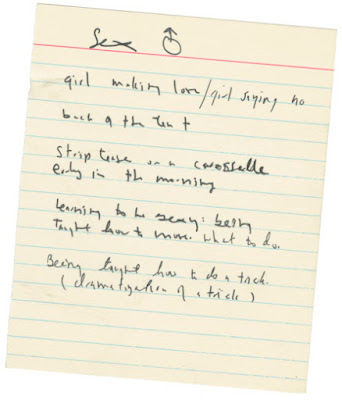 Sex ♂
girl making love/girl saying no
back of the tent
Strip tease on a carosselle
early in the morning
Learning to be sexy: being
taught how to move. what to do.
Being taught how to do a trick.
(dramatization of a trick)